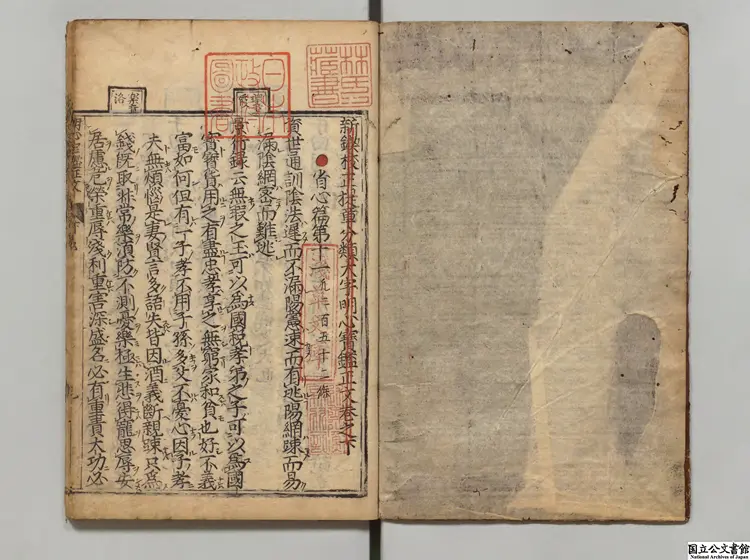 新鍥校正批單分類大字明心寶鑑正文卷之下
省心篇第十一凡二百五十二條
資世通訓陰法遲而不漏陽憲速而有逃陽網踈而易
漏陰網密而難逃
景行錄云無瑕之玉可以爲國稅孝弟之子可以爲國
寶寶貨用之有盡忠孝享之無窮家和貧也好不義
富如何但有一子孝不用子孫多父不憂心因子孝
夫無煩惱是妻賢言多語失皆因酒義斷親踈只爲
錢既取非常樂須防不測憂樂極生悲得寵思辱安
居慮危榮重辱淺利重害深盛名必有重責大功必
林氏
藏書
日本
政府
圖書
國立公文書館
National Archives of Japan